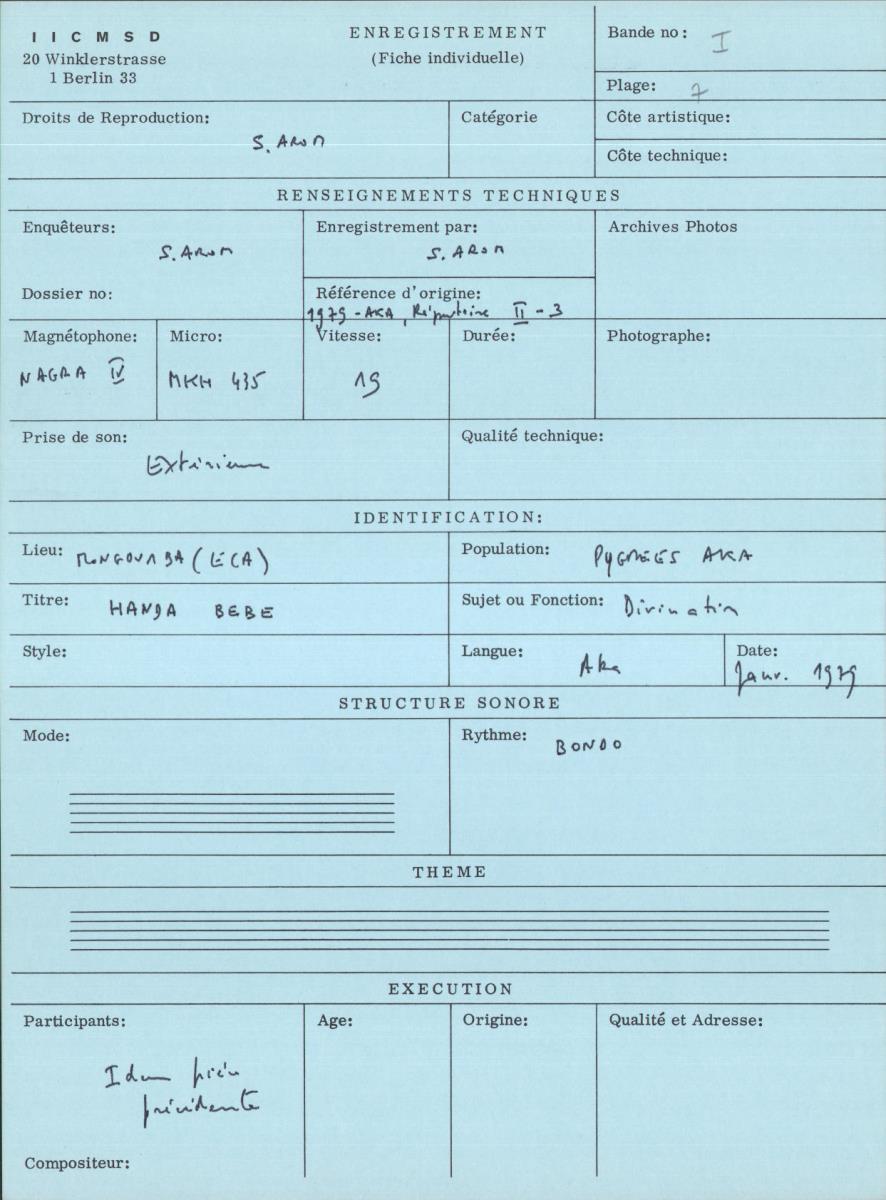 I I C M S D
20 Winklerstrasse
1 Berlin 33
ENREGISTREMENT
(Fiche individuelle)
Bande no: I
Plage: 7
Droits de Reproduction:
S. AROM
Catégorie
Côte artistique:
Côte technique:
RENSEIGNEMENTS TECHNIQUES
Enquêteurs:
S. AROM
Dossier no:
Enregistrement par:
S. AROM
Référence d'origine:
1979 - AKA, Répertoire II - 3
Archives Photos
Magnétophone:
NAGRA IV
Micro:
MKH 435
Vitesse:
19
Durée:
Photographe:
Prise de son:
Extérieure
Qualité technique:
IDENTIFICATION:
Lieu: MONGOUMBA (ECA)
Population: PYGMEES AKA
Titre: HANDA BEBE
Sujet ou Fonction: Divination
Style:
Langue: Aka
Date:
Janv. 1979
STRUCTURE SONORE
Mode:
Rythme: BONDO
THEME
EXECUTION
Participants:
Idem pièce
précédente
Compositeur:
Age:
Origine:
Qualité et Adresse: